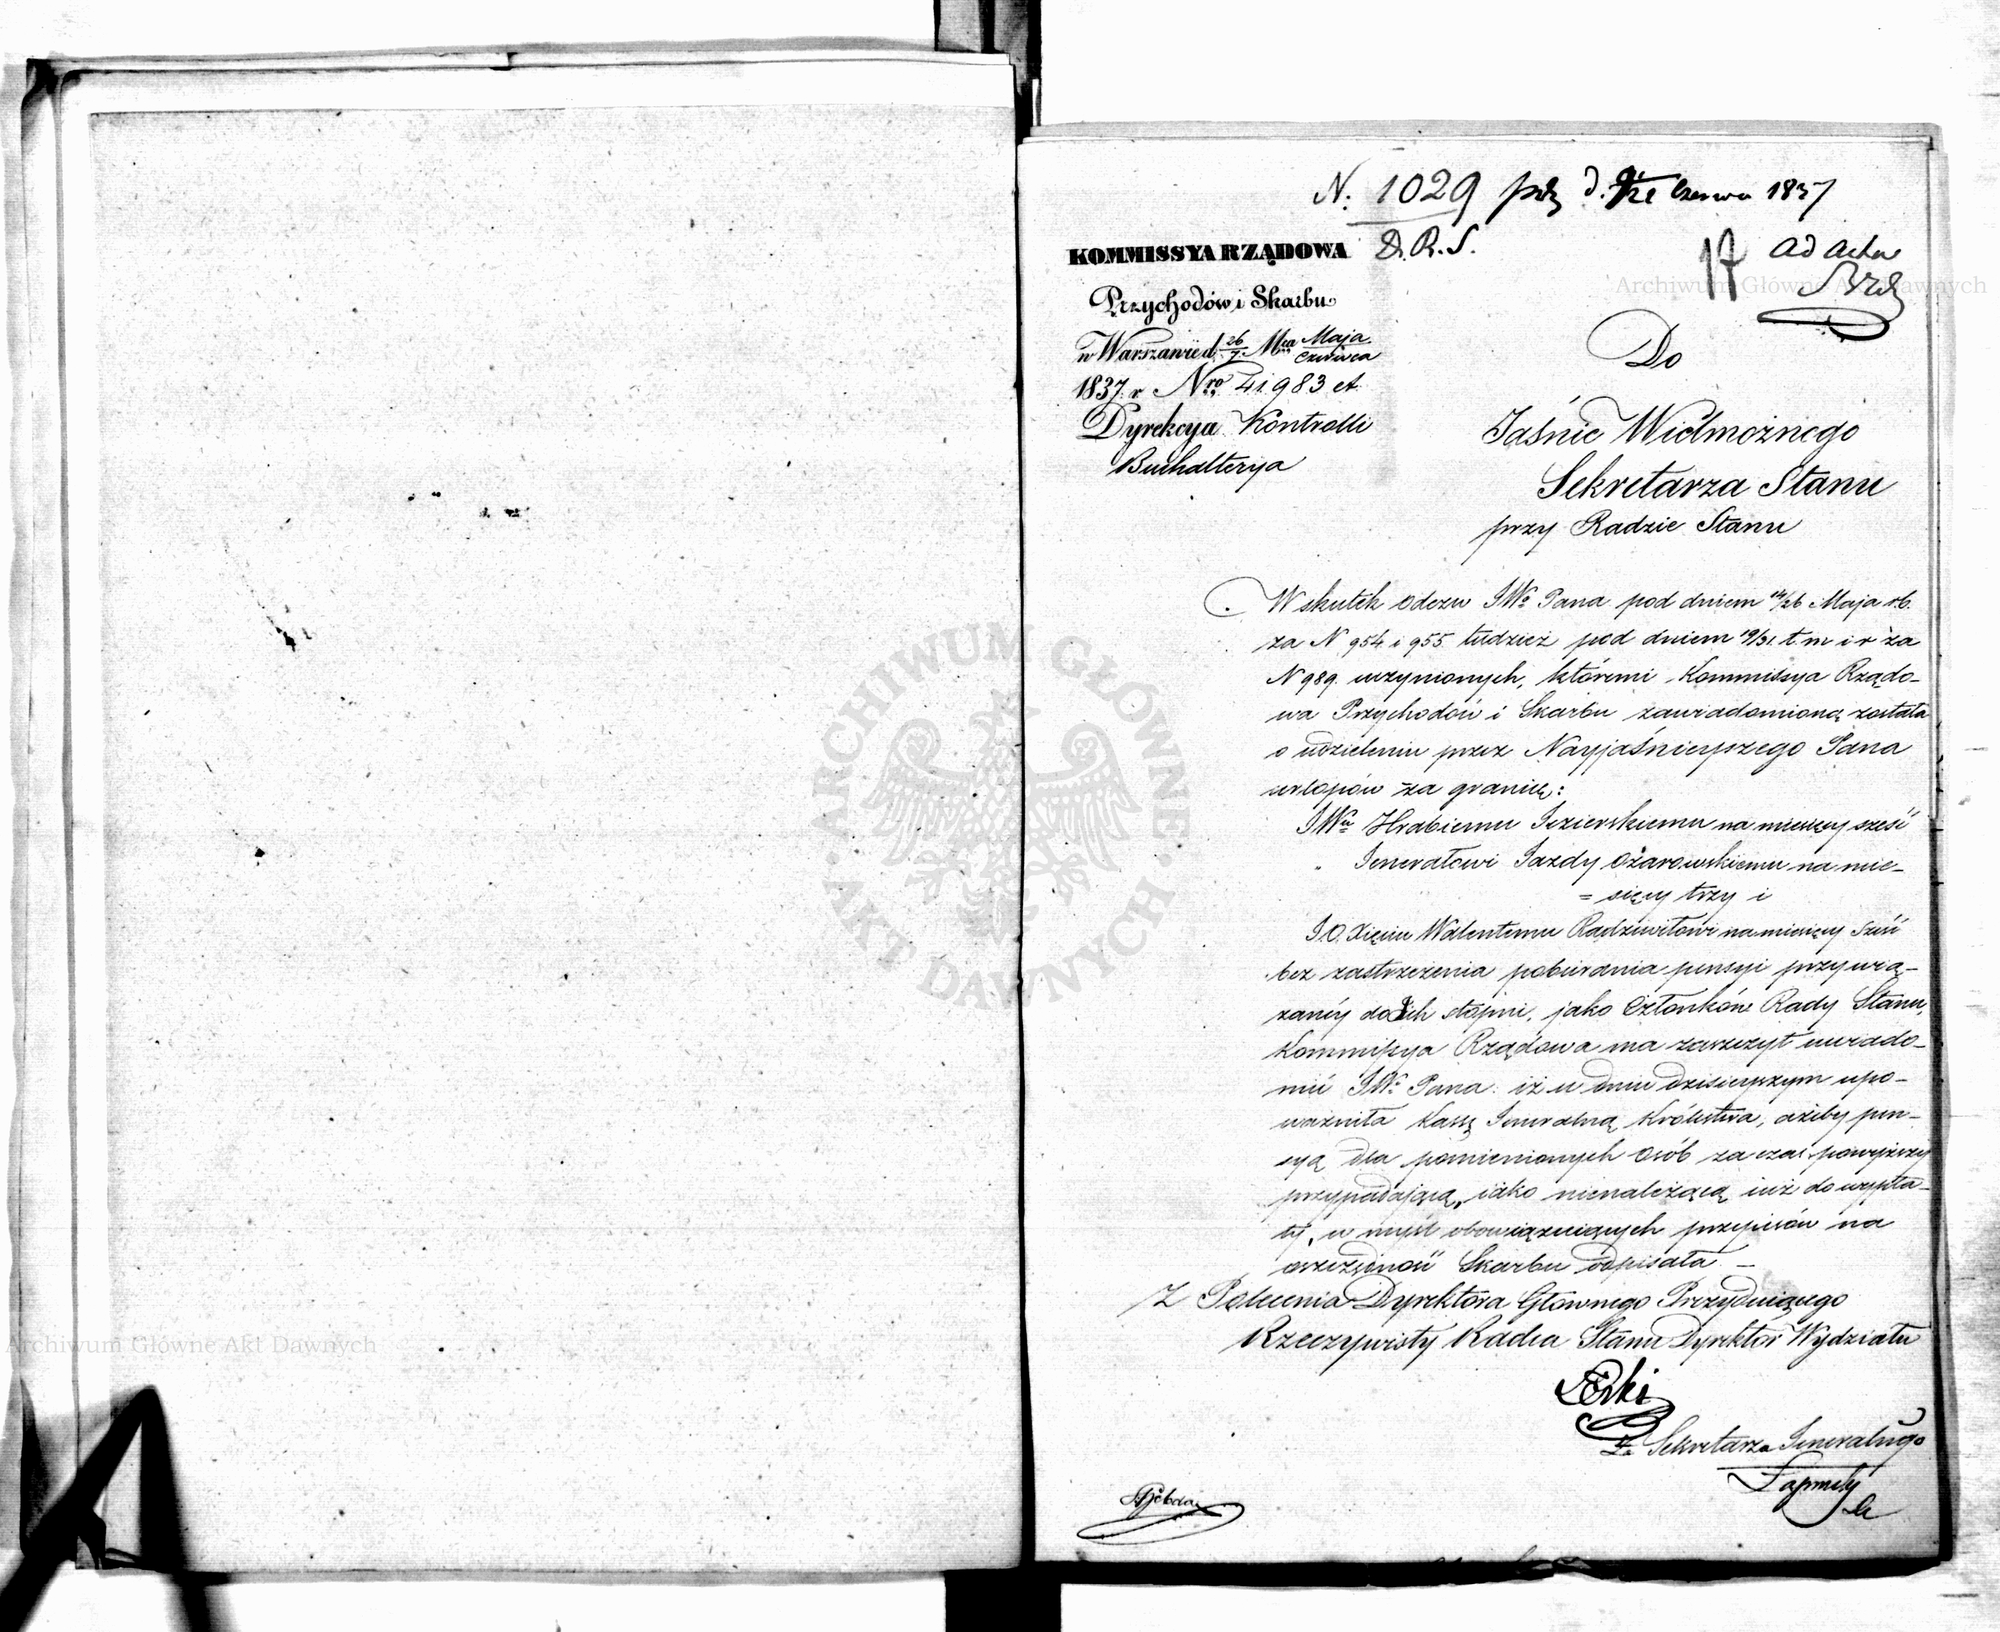 N. 1029 d. Czerwca 1837
D. R. S.
17 ad acta
KOMMISSYA RZĄDOWA
Przychodów i Skarbu
w Warszawie d. 26/7. Mca Maja/Czerwca
1837. r. Nro 41983 et.
Dyrekcya Kontrolli
Buchalterya
Do
Jaśnie Wielmożnego
Sekretarza Stanu
przy Radzie Stanu
W skutek odezw JWo Pana pod dniem 14/26 Maja r.b.
za N 954 i 955 tudzież pod dniem 19/31. t. m i r za
N 989. uczynionych, któremi Kommissya Rządo-
wa Przychodów i Skarbu zawiadomioną została
o udzieleniu przez Nayjaśnieyszego Pana
urlopów za granicę:
JWu Hrabiemu Jezierskiemu na miesięcy sześć
„ Jenerałowi Jazdy Ożarowskiemu na mie-
= sięcy trzy i
J.O. Xięciu Walentemu Radziwiłłowi na miesięcy sześć
bez zastrzeżenia pobierania pensyi przywią-
zanéy do Ich stopni, jako Członków Rady Stanu,
Kommissya Rządowa ma zaszczyt uwiado-
mić JWo Pana: iż w dniu dzisieyszym upo-
ważniła Kassę Jeneralną Królestwa, ażeby pen-
syą dla pomienionych osób za czas powyższy
przypadającą, iako nienależącą iuż do wypła-
ty, w myśl obowiązuiących przepisów na
oszczędność Skarbu odpisała. —
Z Polecenia Dyrektora Głównego Prezyduiącego
Rzeczywisty Radca Stanu Dyrektor Wydziału
Za Sekretarza Jeneralnego
ARCHIWUM GŁÓWNE
AKT DAWNYCH
Archiwum Główne Akt Dawnych
Archiwum Główne Akt Dawnych